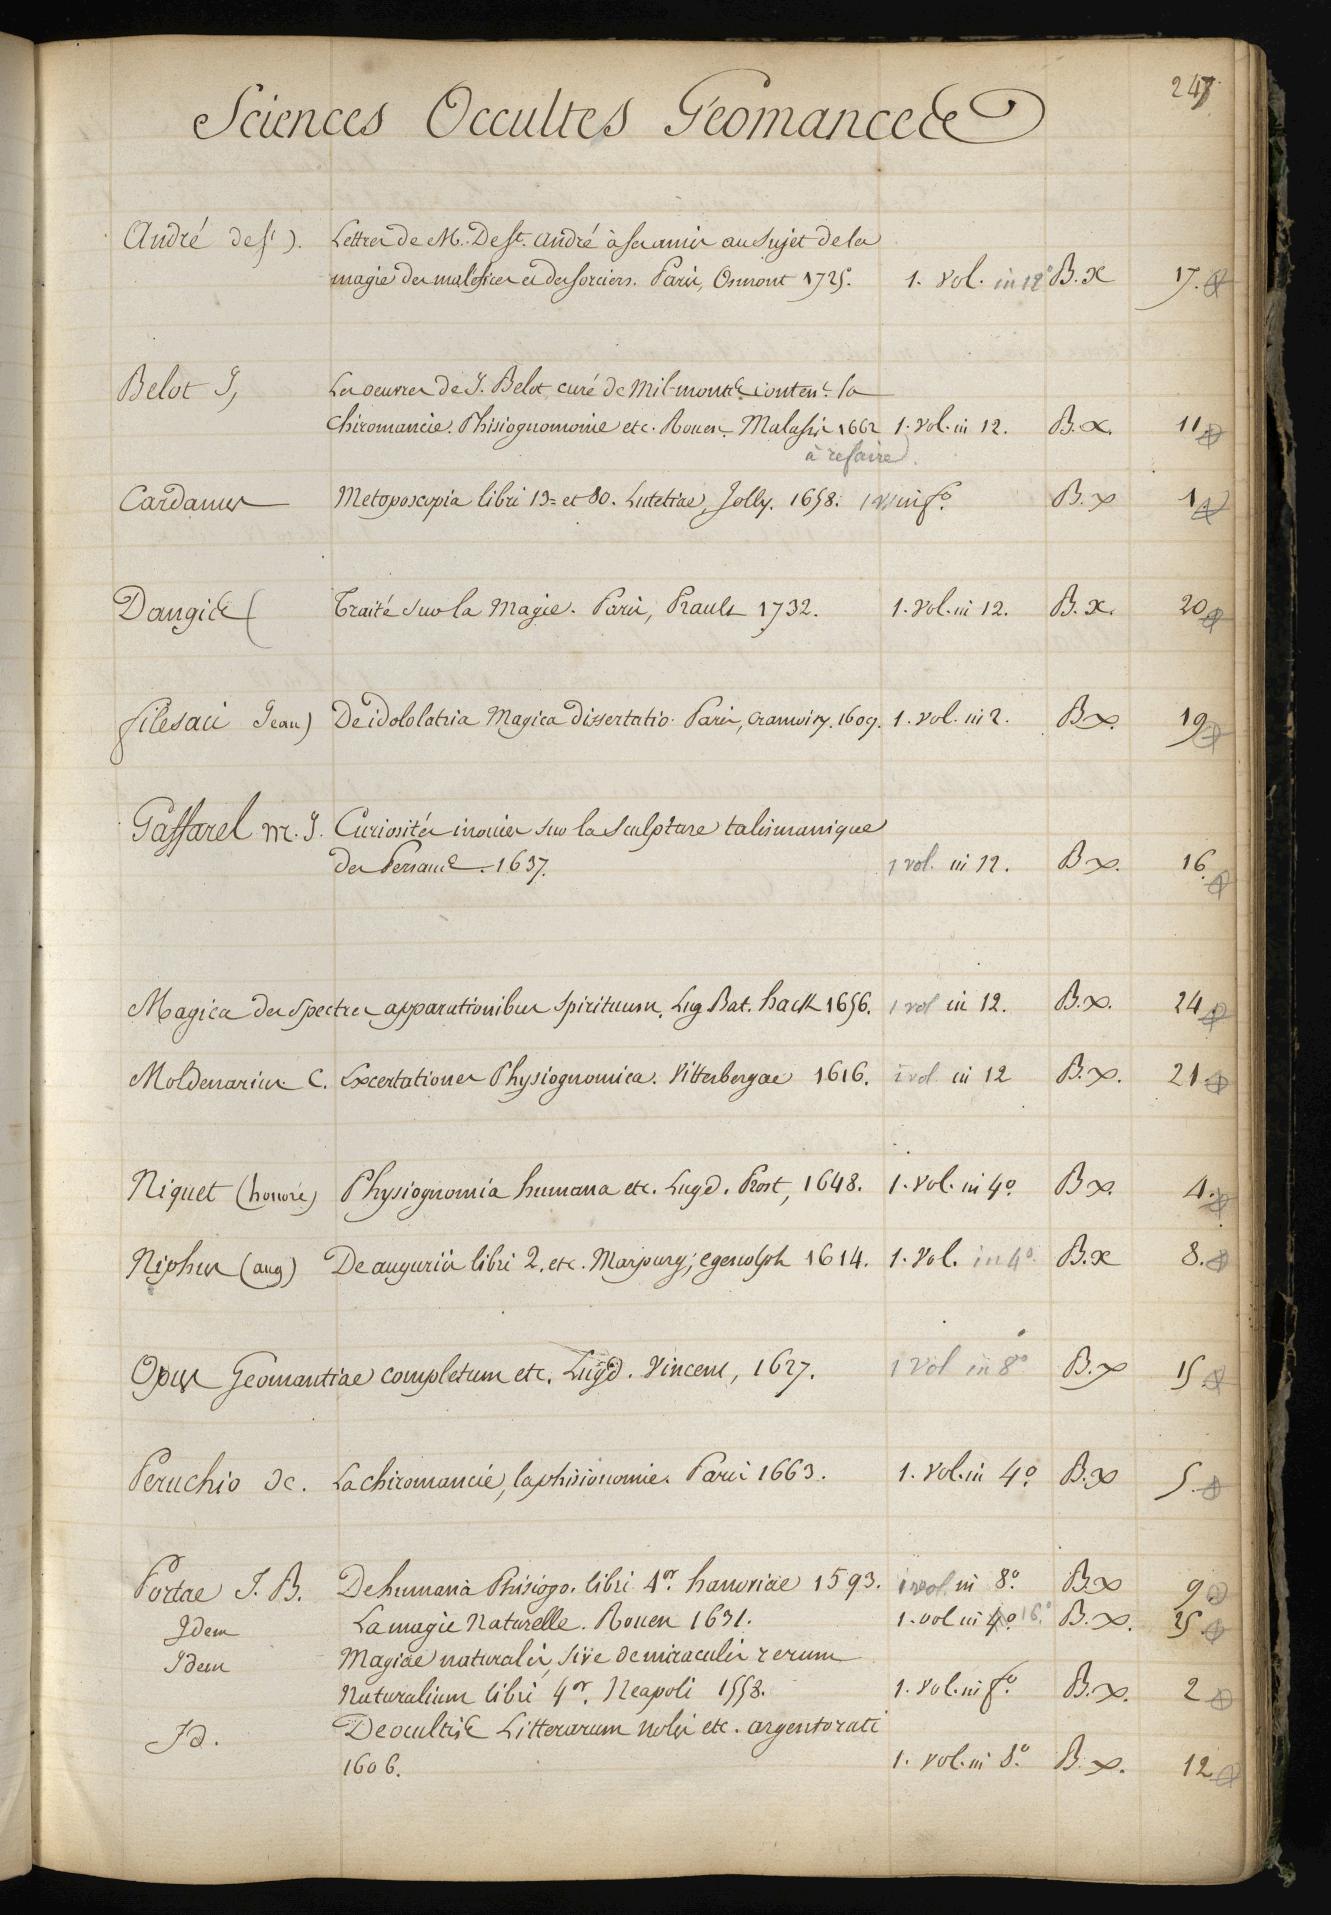 247
Sciences Occultes Géomance &c
André de St). Lettres de M. De St. André à ses amis au sujet de la
magie des malefices et des sorciers. Paris, Osmont 1725. 1. vol. in 12° B.x 17.
Belot J, Les oeuvres de J. Belot, curé de Mil-monts content. la
Chiromancie. Phisiognomonie etc. Rouen. Malassis 1662 1. vol. in 12. B.x. 11.
à refaire
Cardanus Metoposcopia libri 13= et 80. Lutetiae, Jolly. 1658. 1 v in f° B.x 1.
Daugis ( Traité sur la Magie. Paris, Prault 1732. 1. vol. in 12. B.x. 20.
filesaci Jean) De idololatria Magica dissertatio. Paris, Cramoisy. 1609. 1. vol. in 2. Bx. 19
Gaffarel m. J. Curiosités inouies sur la sculpture talismanique
des Persans. 1637. 1 vol. in 12. Bx. 16.
Magica de Spectres apparationibus Spirituum. Lug Bat. hack 1656. 1 vol in 12. B.x. 24.
Moldenarius C. Excertationes Physiognomica. Vitterbergae 1616. 1 vol. in 12 B.x. 21.
Niquet (honoré) Physiognomia humana etc. Lugd. Prost, 1648. 1. vol. in 4° Bx. 4.
Niphus (aug) De auguriis libri 2. etc. Marpurg; egenolph 1614. 1. vol. in 4° B.x 8.
Opus Geomantiae completum etc. Lugd. Vincent, 1627. 1 vol in 8° B.x 15.
Peruchio de. La chiromancie, la phisionomie. Paris 1663. 1. vol. in 4° B.x 5.
Portae J. B. De humanâ Phisiogo. libri 4or. hanoviae 1593. 1 vol. in 8° B.x 9
Idem La magie Naturelle. Rouen 1631. 1. vol in 4° 16° B.x. 25.
Idem Magiae naturalis, sive de miraculis rerum
Naturalium libri 4or. Neapoli 1558. 1. vol. in f° B.x. 2
Id. De ocultis Litterarum notis etc. argentorati
1606. 1. vol. in 8° B.x. 12